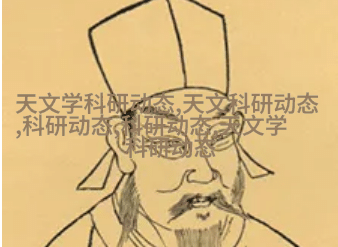 天文学科研动态,天文科研动态
,科研动态,科研动态,天文学
科研动态